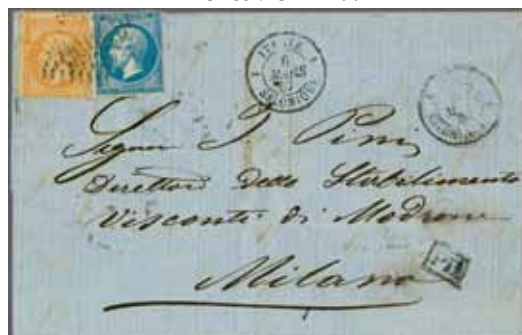 6
MARS
SALONIQUE
Signor J Pini
Direttore dello Stabilimento
Visconti di Modrone
Milano
P.D.